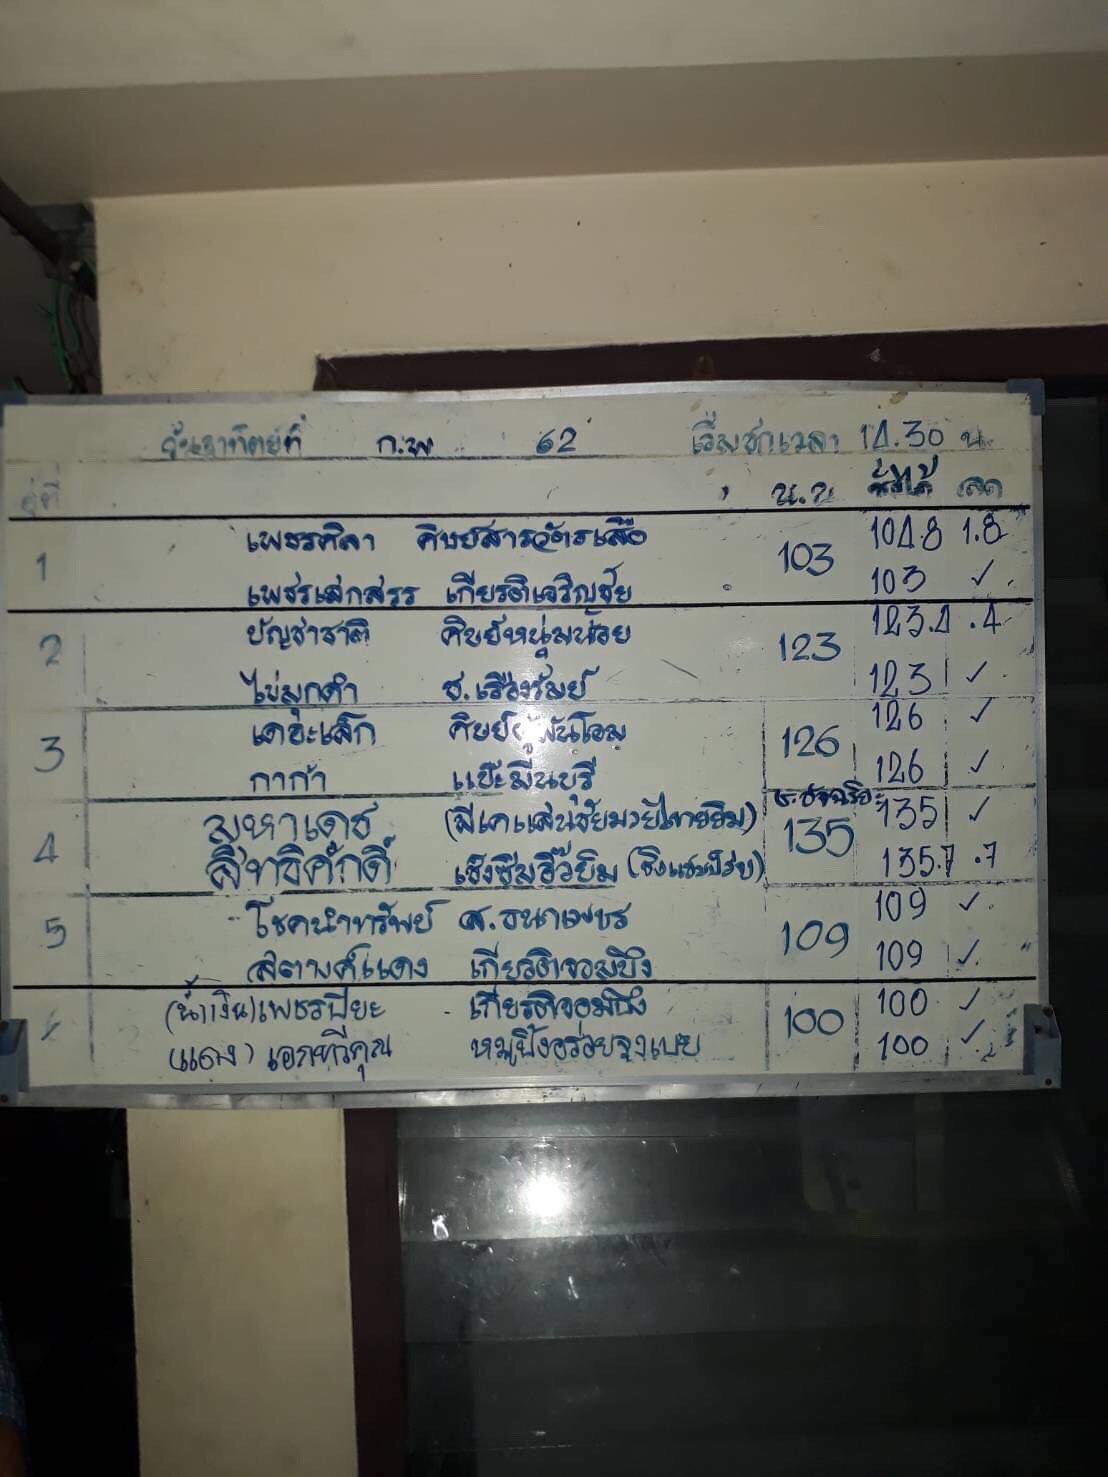 วันอาทิตย์ที่ ก.พ 62 เริ่มชกเวลา 14.30 น.
คู่ที่ น.น. ชั่งได้ ลด
1 เพชรศิลา ศิษย์สารวัตรเสือ 103 104.8 1.8
เพชรเสกสรร เกียรติเจริญชัย 103 ✓
2 บัญชาชาติ ศิษย์หนุ่มน้อย 123 123.4 .4
ไข่มุกดำ ช.เรืองรัมย์ 123 ✓
3 เดอะเล็ก ศิษย์ผู้พันโอม 126 126 ✓
กาก้า แป๊ะมีนบุรี 126 ✓
4 มหาเดช (มีเดแสนชัยมวยไทยยิม) 135 135 ✓
สิทธิศักดิ์ เซ้งซีมอี๊วยิม (ชิงแชมป์) 135.7 .7
5 โชคนำทรัพย์ ส.ธนาเพชร 109 109 ✓
สตางค์แดง เกียรติจอมบึง 109 ✓
(น้ำเงิน) เพชรปิยะ เกียรติจอมบึง 100 100 ✓
(แดง) เอกทวีคูณ หมูปิ้งอร่อยจุงเบย 100 ✓